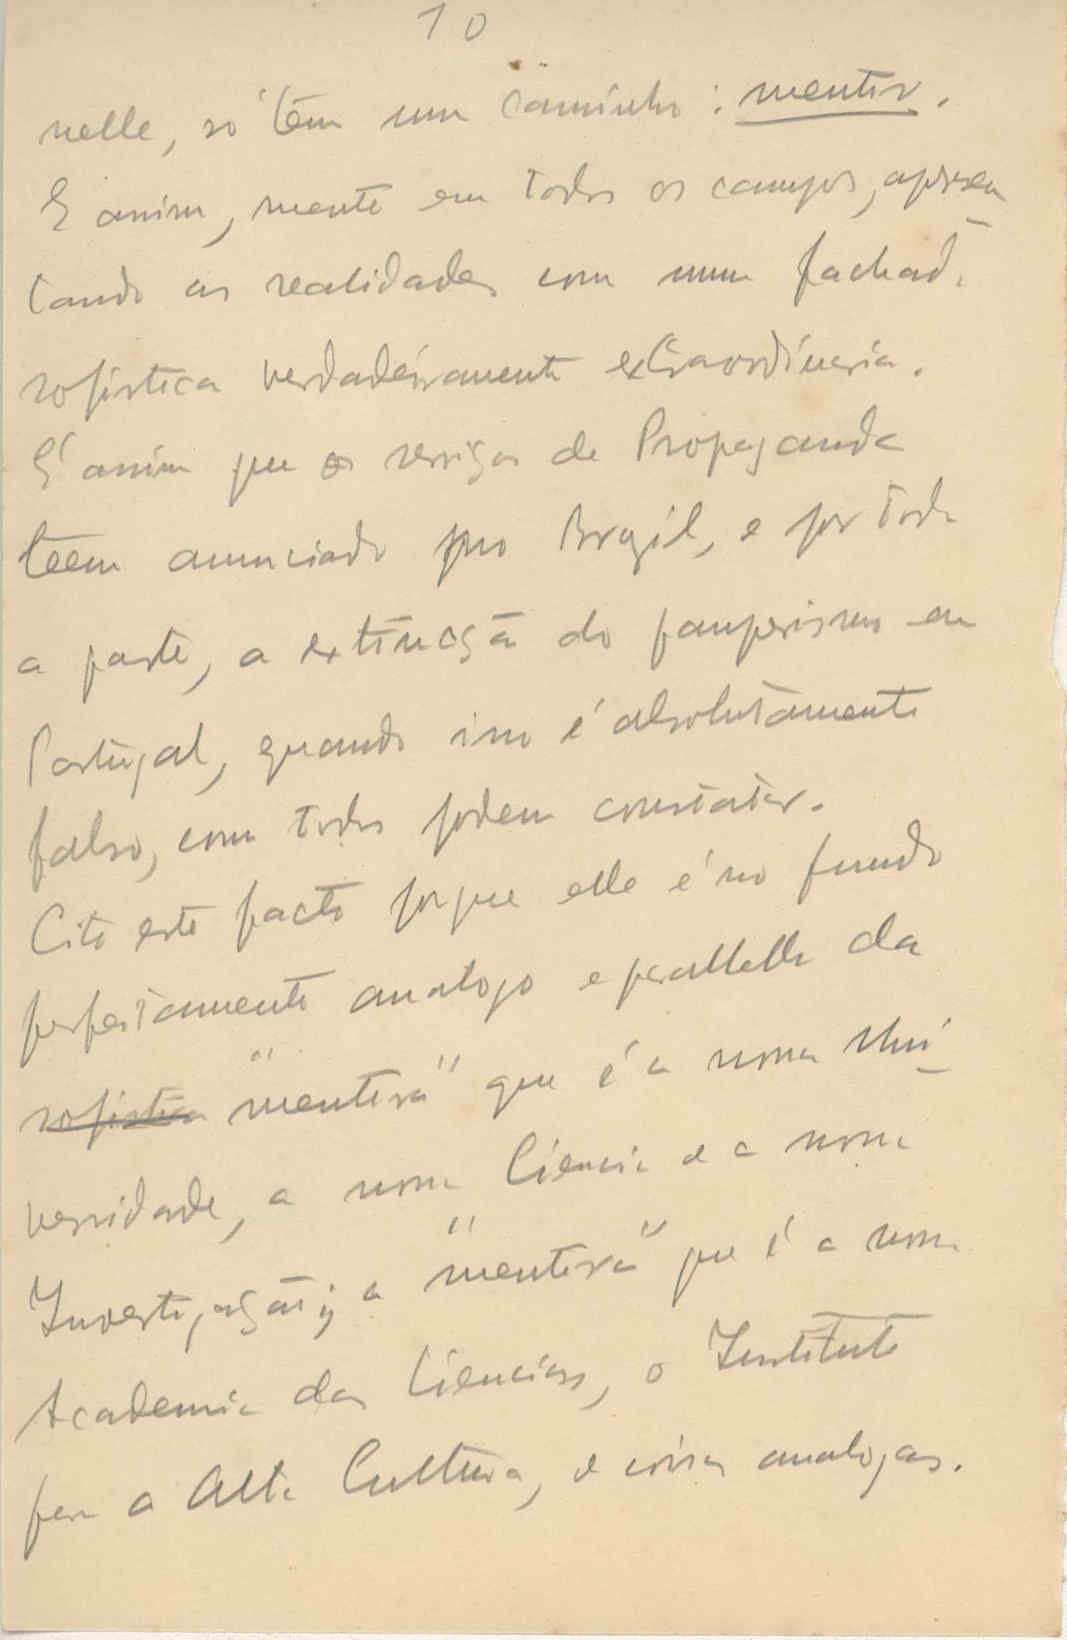 10
nelle, só têm um caminho: mentir.
E assim, mente em todos os campos, apresen
tando as realidades com uma fachada
sofistica verdadeiramente extraordinaria.
É assim que os serviços de Propaganda
teem anunciado pro Brazil, e por toda
a parte, a extincção do pauperismo em
Portugal, quando isso é absolutamente
falso, como todos podem constatar.
Cito este facto porque elle é no fundo
perfeitamente analogo e parallello da
sofistica "mentira" que é a nossa Uni-
versidade, a nossa Ciencia e a nossa
Investigação; a "mentira" que é a nossa
Academia das Ciencias, o Instituto
para a Alta Cultura, e coisas analogas.